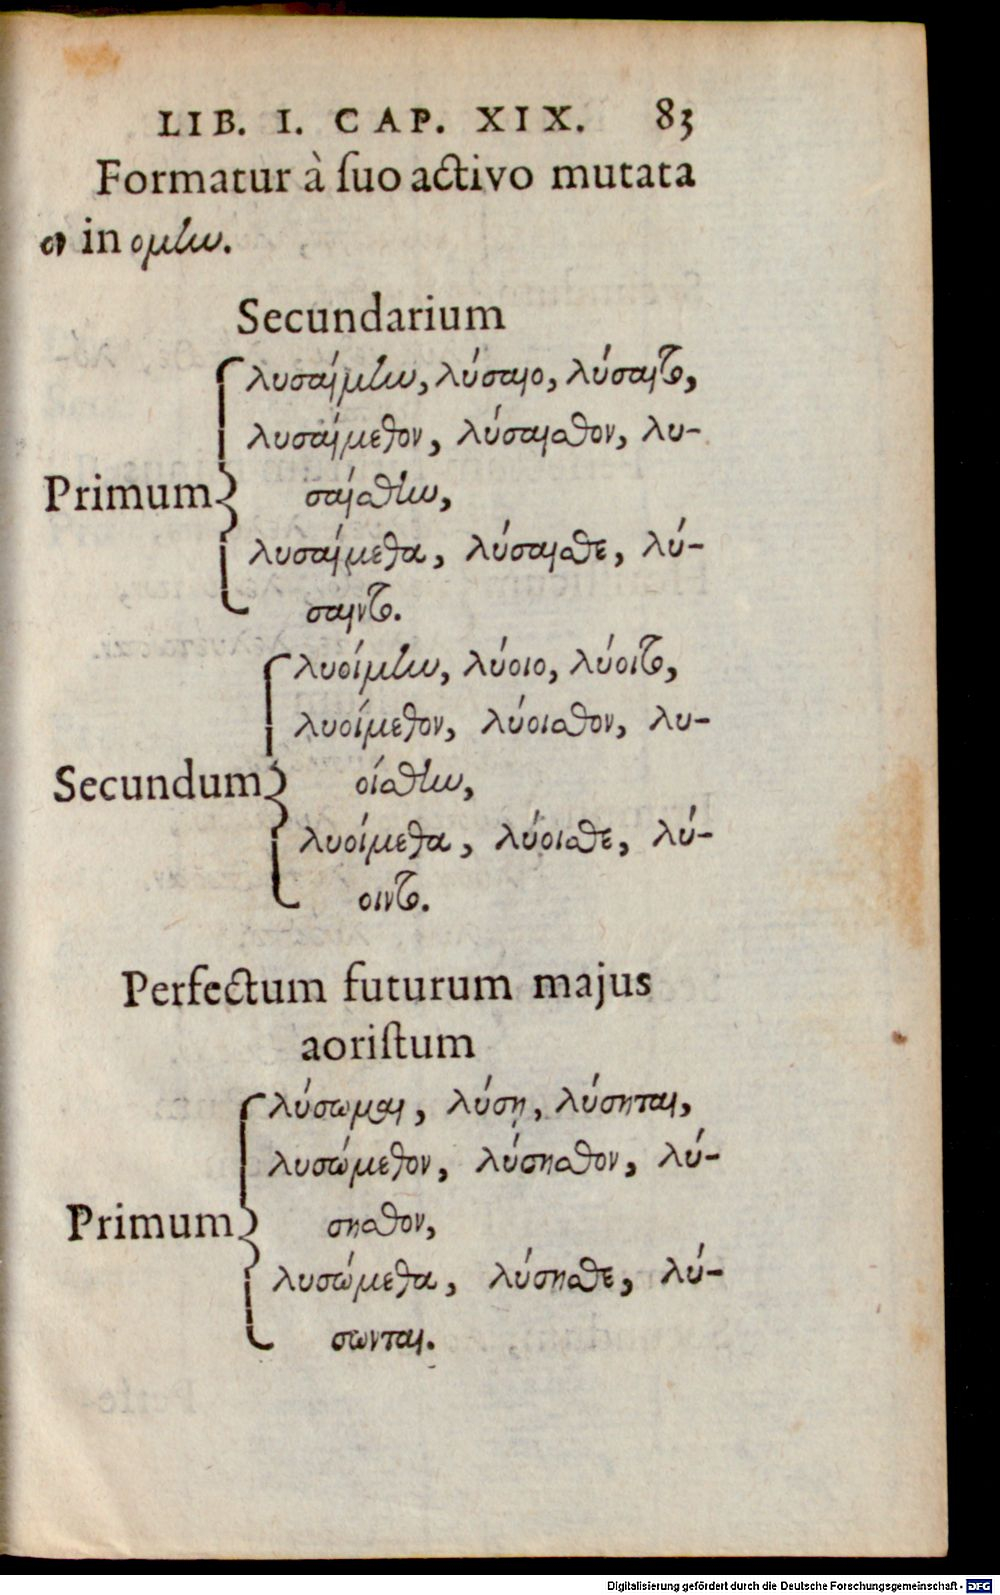 LIB. I. CAP. XIX. 83
Formatur à ſuo activo mutata
in ομην.
Secundarium
λυσαίμην, λύσαιο, λύσαιτο,
λυσαίμεθον, λύσαισθον, λυ-
Primum σαίσθην,
λυσαίμεθα, λύσαισθε, λύ-
σαιντο.
λυοίμην, λύοιο, λύοιτο,
λυοίμεθον, λύοισθον, λυ-
Secundum οίσθην,
λυοίμεθα, λύοισθε, λύ-
οιντο.
Perfectum futurum majus
aoriſtum
λύσωμαι, λύσῃ, λύσηται,
λυσώμεθον, λύσησθον, λύ-
Primum σησθον,
λυσώμεθα, λύσησθε, λύ-
σωνται.
Digitalisierung gefördert durch die Deutsche Forschungsgemeinschaft - DFG